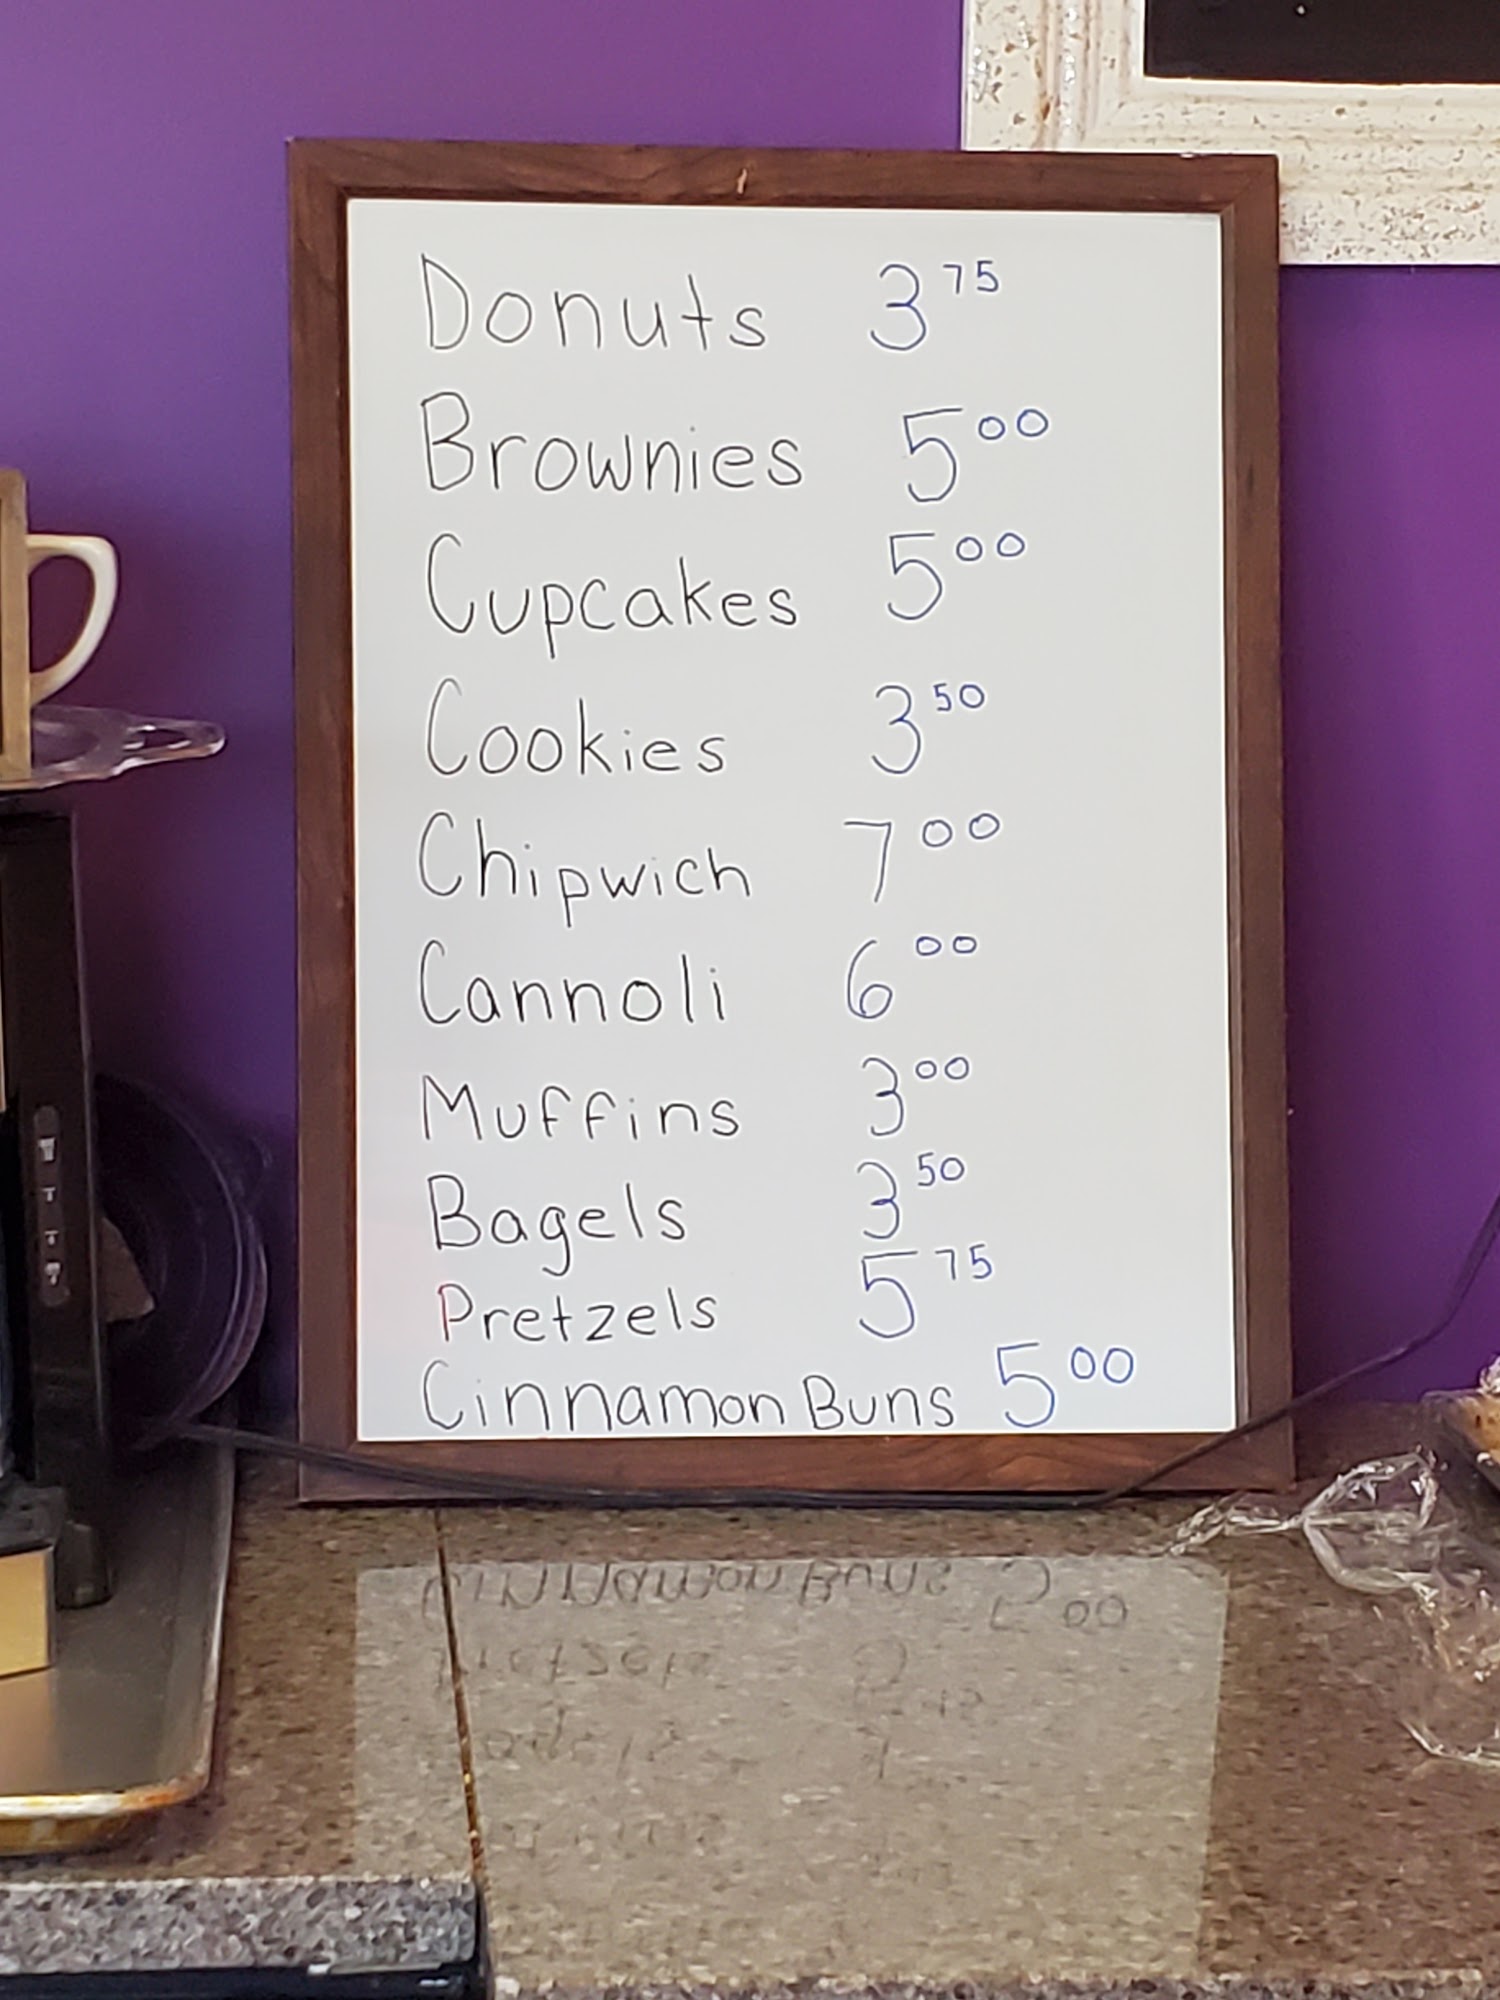 Donuts 3 75
Brownies 5 00
Cupcakes 5 00
Cookies 3 50
Chipwich 7 00
Cannoli 6 00
Muffins 3 00
Bagels 3 50
Pretzels 5 75
Cinnamon Buns 5 00